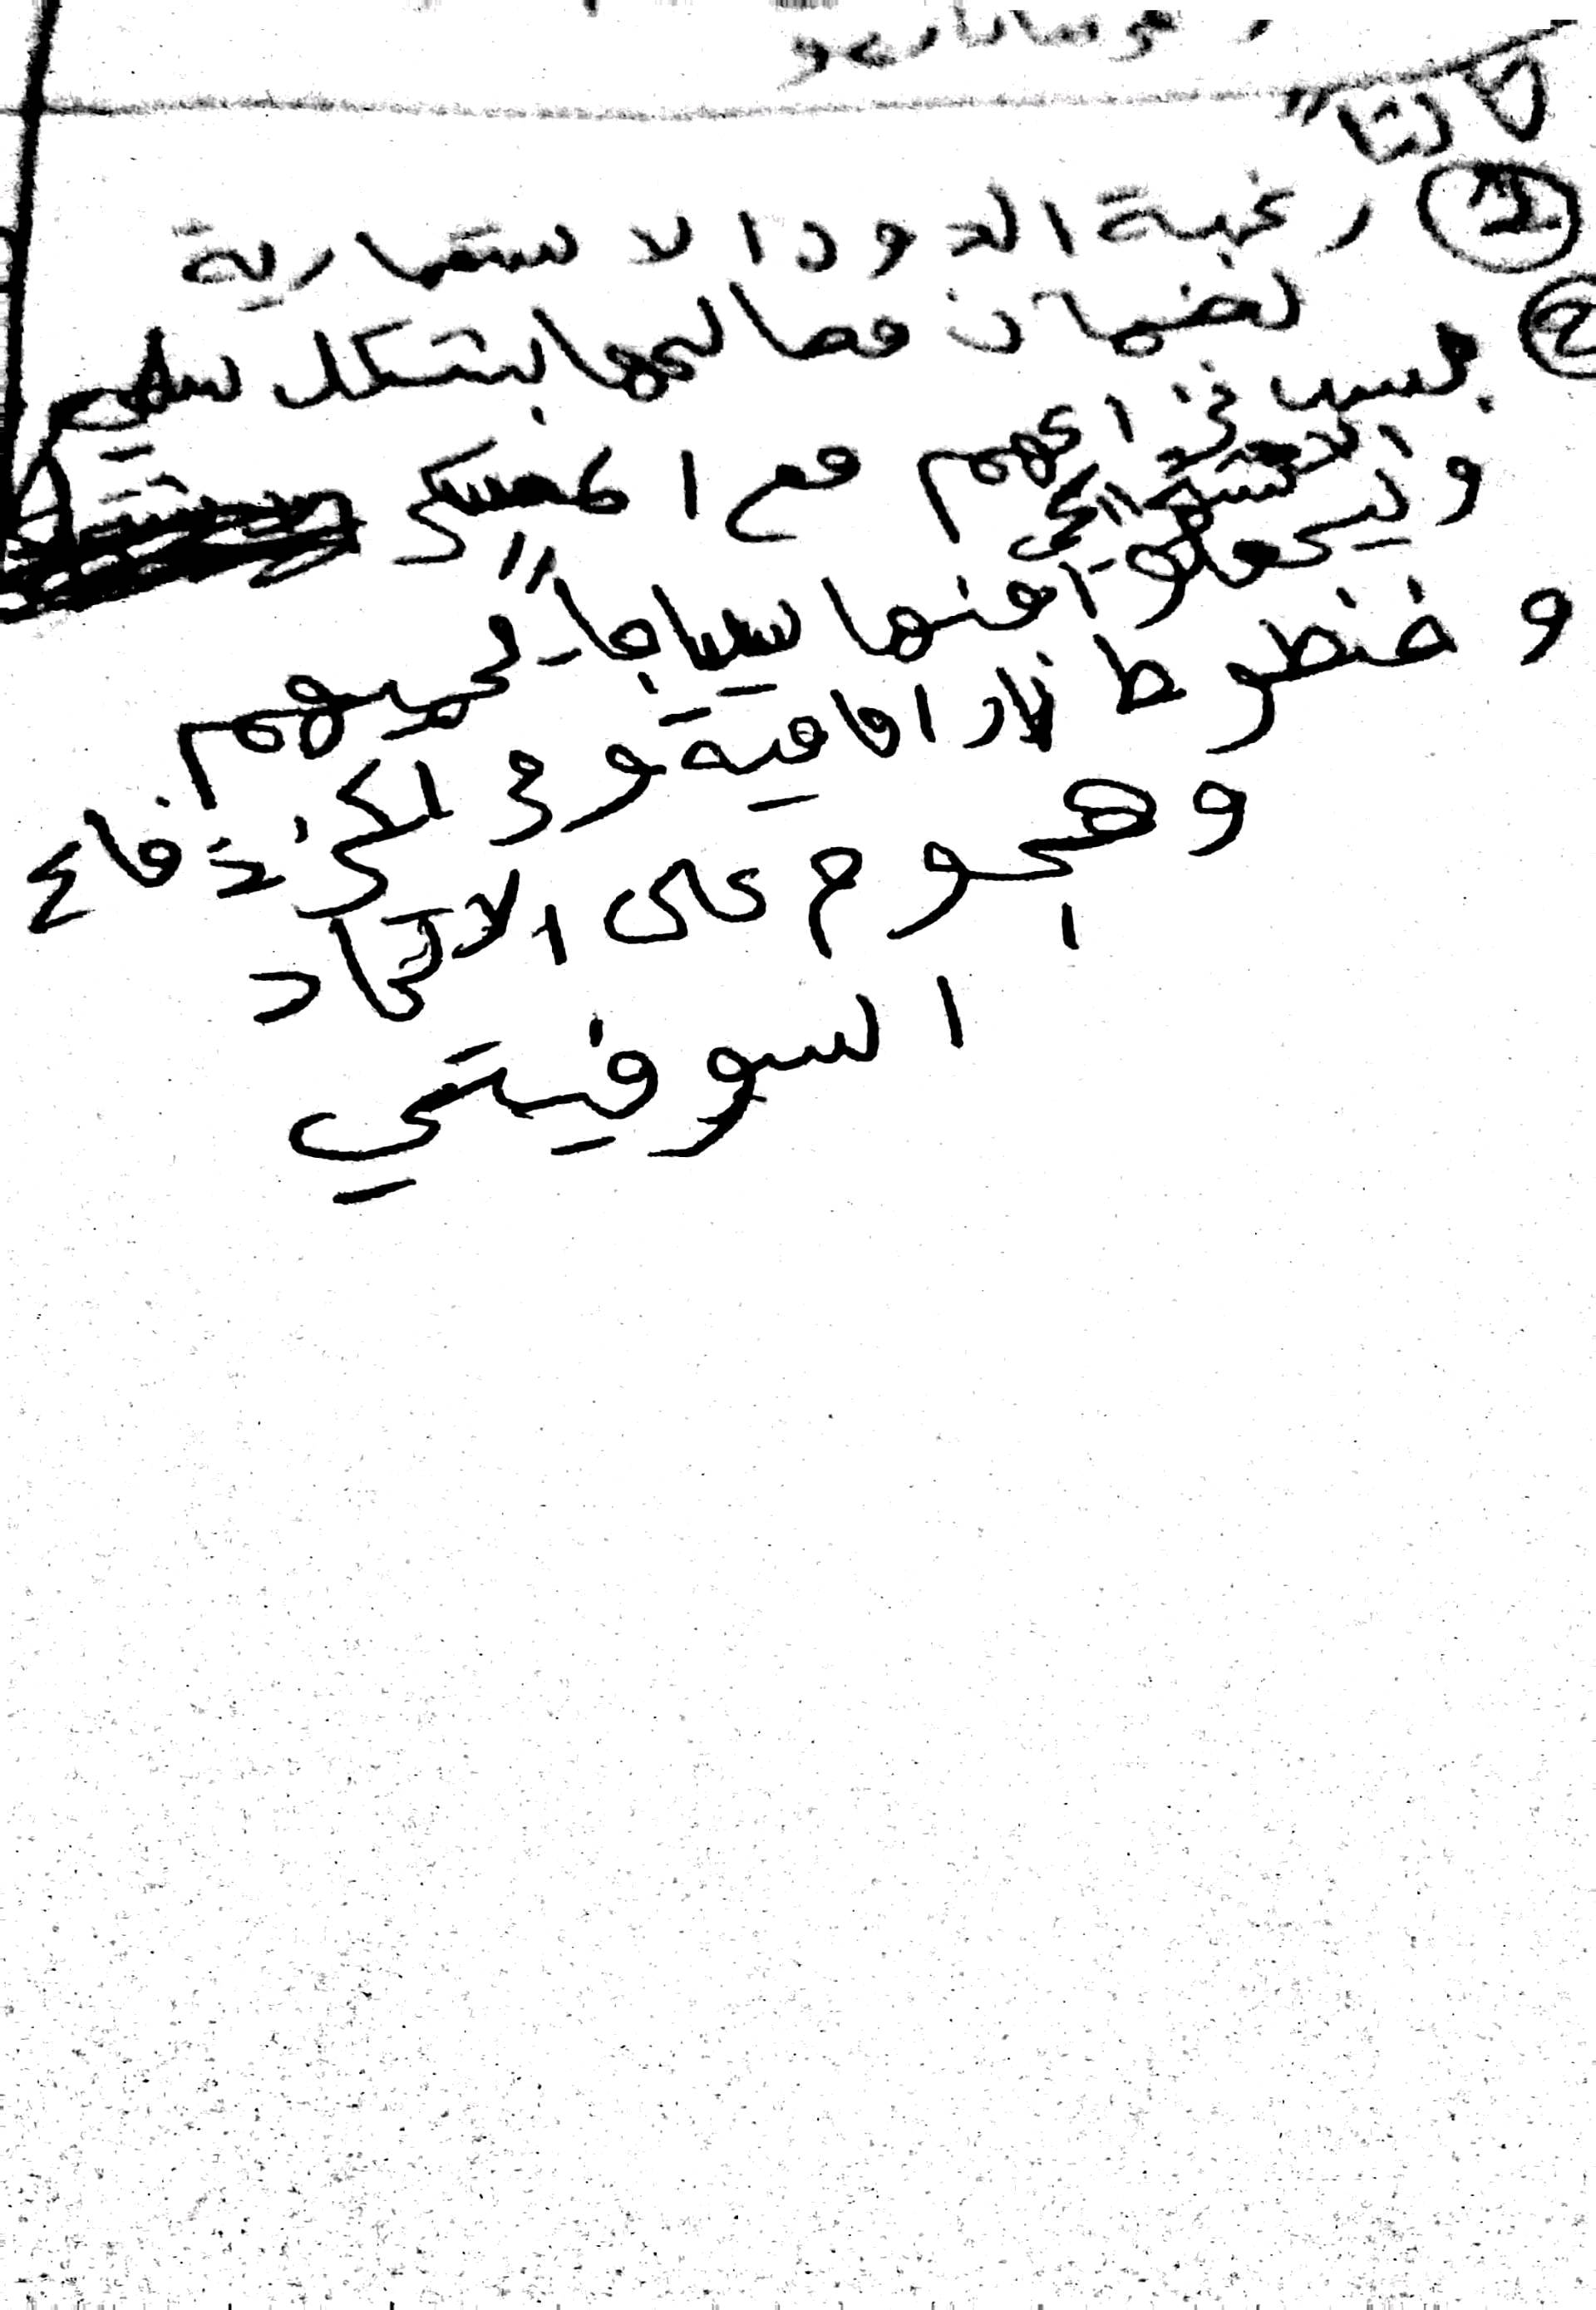 ① رغبة الدول الاستعمارية
لضمان مصالحها بشكل سلمي
② بسبب نزاعهم مع المعسكر
الاشتراكي
وليجعلوا منها سياجا يحميهم
و خطوط نار امامية ومراكز دفاع
و هجوم على الاتحاد
السوفيتي